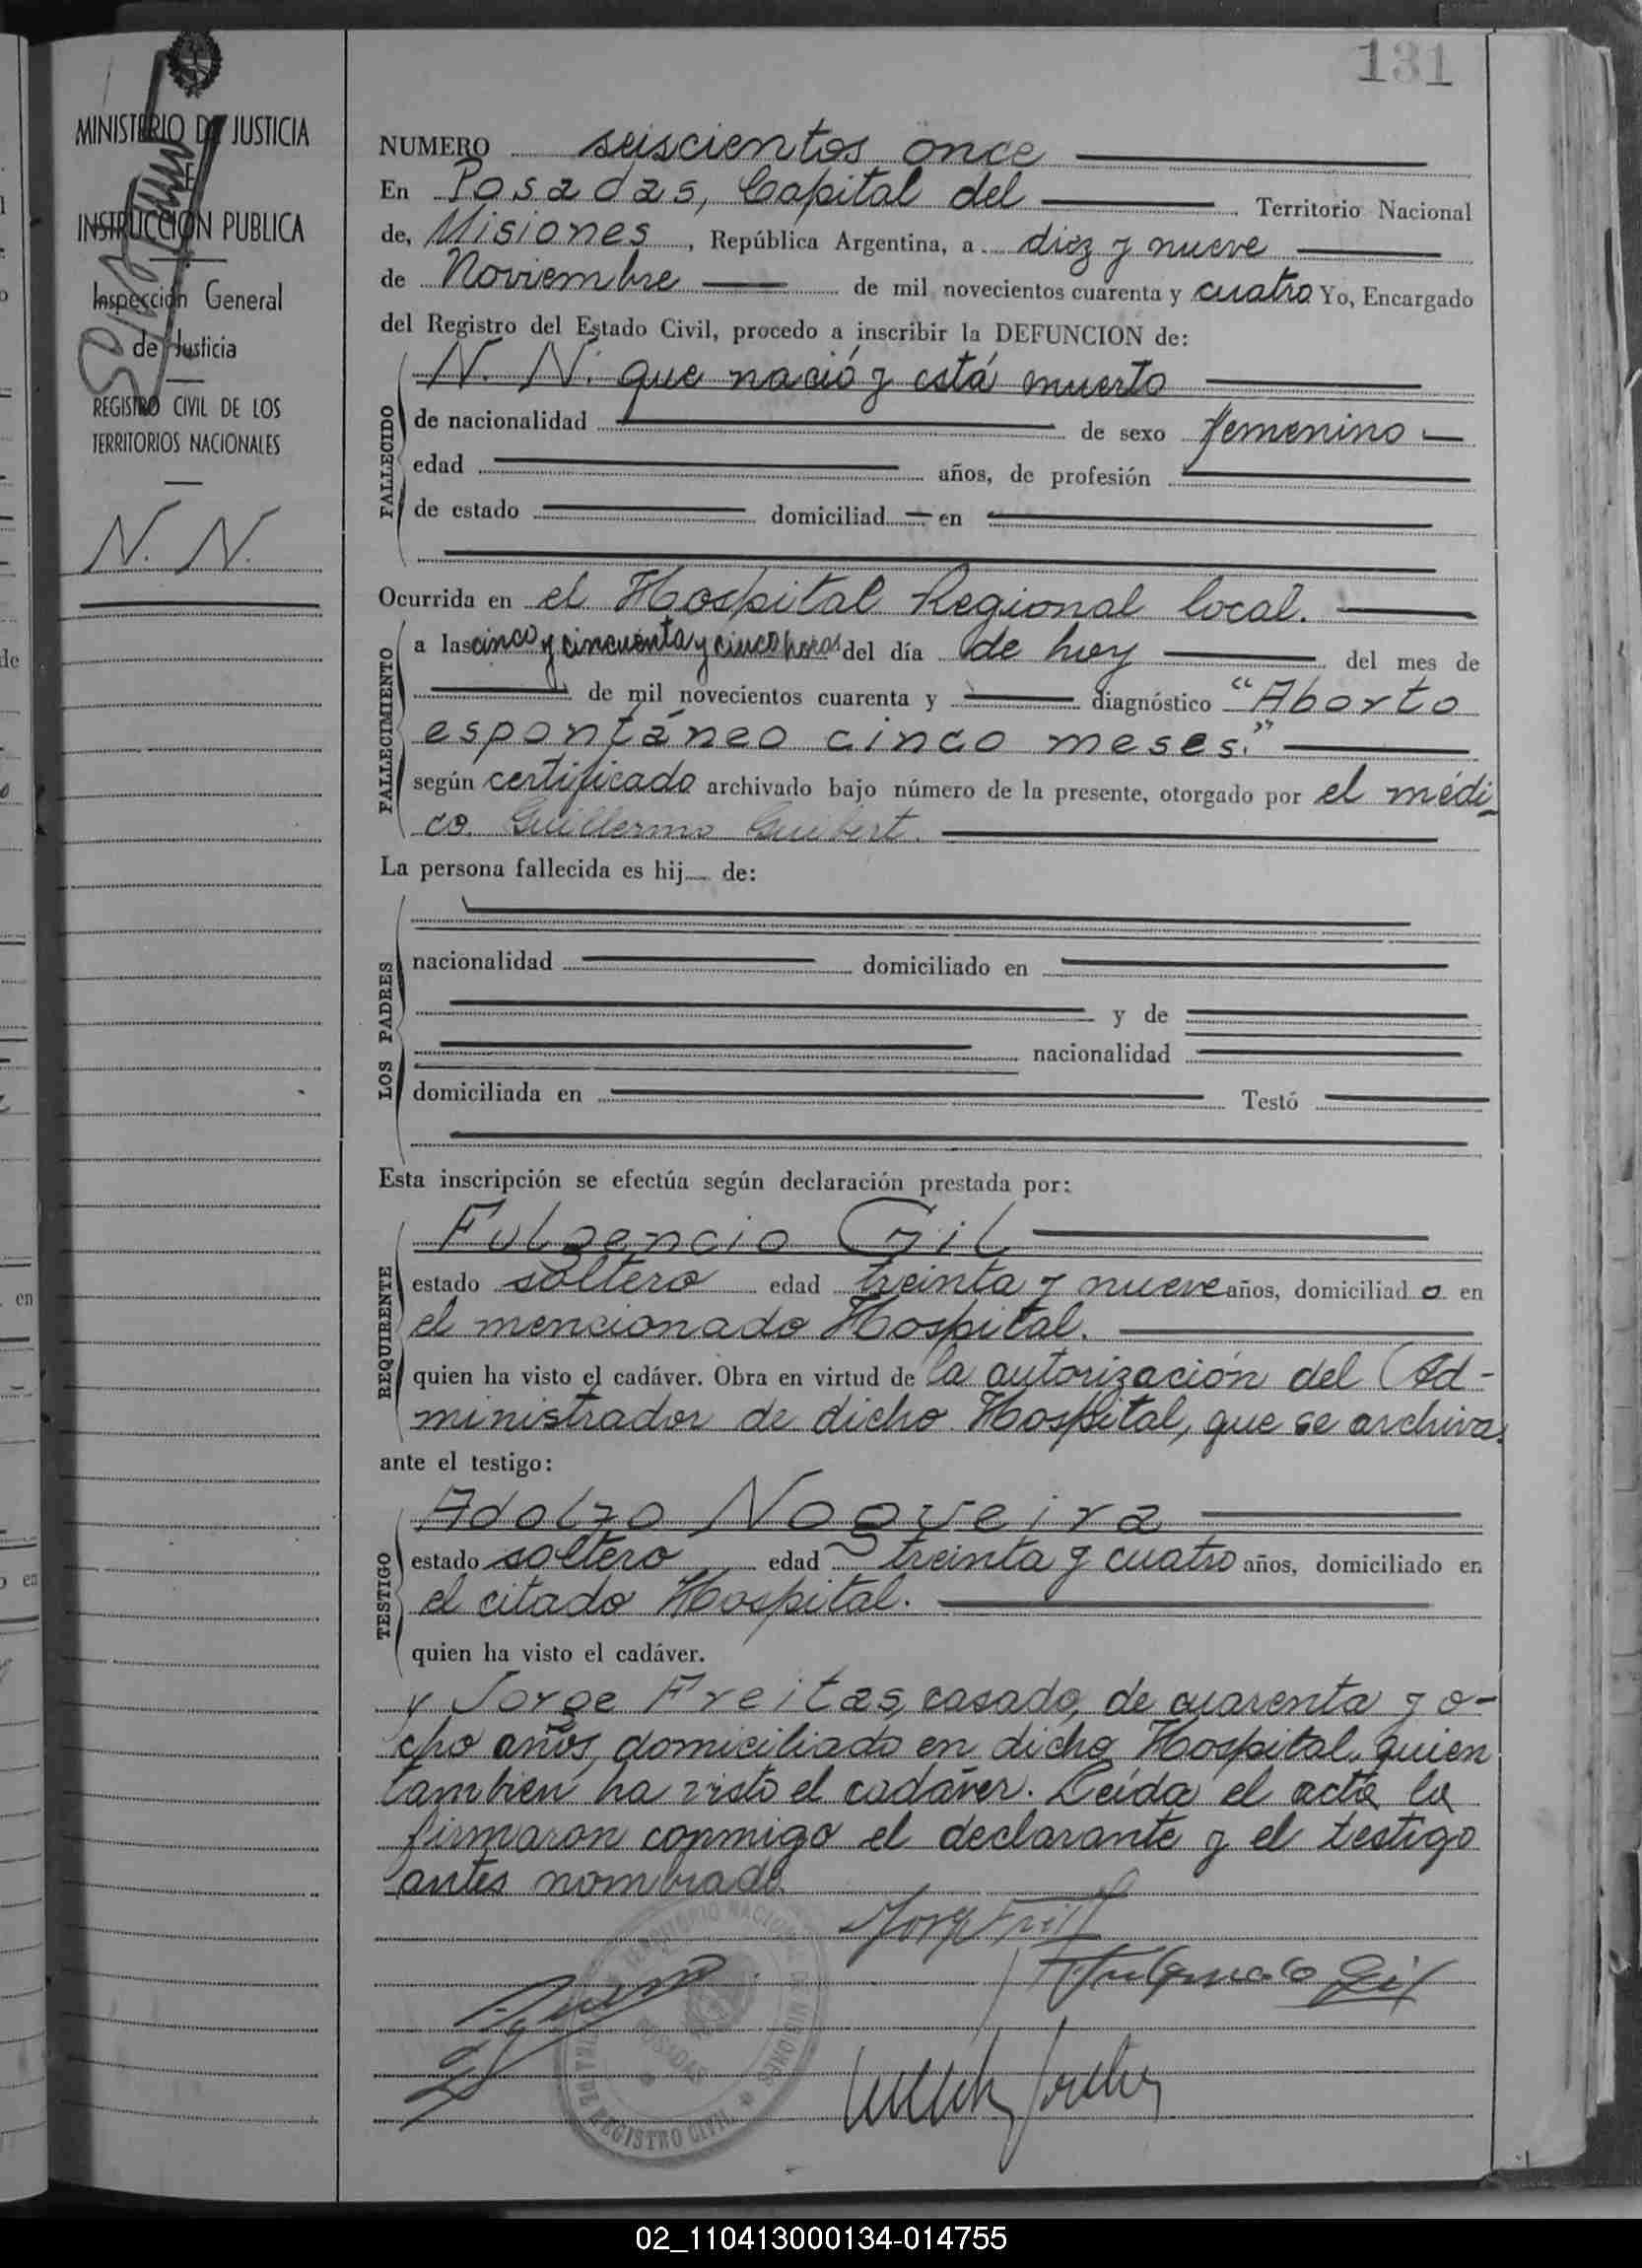 131
MINISTERIO DE JUSTICIA
E
INSTRUCCION PUBLICA
Inspección General
de Justicia
REGISTRO CIVIL DE LOS
TERRITORIOS NACIONALES
N. N.
NUMERO seiscientos once
En Posadas, Capital del Territorio Nacional
de, Misiones, República Argentina, a diez y nueve
de Noviembre de mil novecientos cuarenta y cuatro Yo, Encargado
del Registro del Estado Civil, procedo a inscribir la DEFUNCION de:
FALLECIDO
N. N. que nació y está muerto
de nacionalidad de sexo femenino
edad años, de profesión
de estado domiciliad en
Ocurrida en el Hospital Regional local.
FALLECIMIENTO
a las cinco y cincuenta y cinco horas del día de hoy del mes de
de mil novecientos cuarenta y diagnóstico "Aborto
espontáneo cinco meses."
según certificado archivado bajo número de la presente, otorgado por el médi-
co Guillermo Guibert.
La persona fallecida es hij de:
LOS PADRES
nacionalidad domiciliado en
y de
nacionalidad
domiciliada en Testó
Esta inscripción se efectúa según declaración prestada por:
REQUIRENTE
Fulgencio Gil
estado soltero edad treinta y nueve años, domiciliado en
el mencionado Hospital.
quien ha visto el cadáver. Obra en virtud de la autorización del Ad-
ministrador de dicho Hospital, que se archiva.
ante el testigo:
TESTIGO
Adolfo Nogueira
estado soltero edad treinta y cuatro años, domiciliado en
el citado Hospital.
quien ha visto el cadáver.
y Jorge Freitas, casado, de cuarenta y o-
cho años, domiciliado en dicho Hospital, quien
tambien ha visto el cadáver. Leída el acta la
firmaron conmigo el declarante y el testigo
antes nombrado.
Fulgencio Gil
TERRITORIO NACIONAL DE MISIONES
POSADAS
REGISTRO CIVIL
02_110413000134-014755